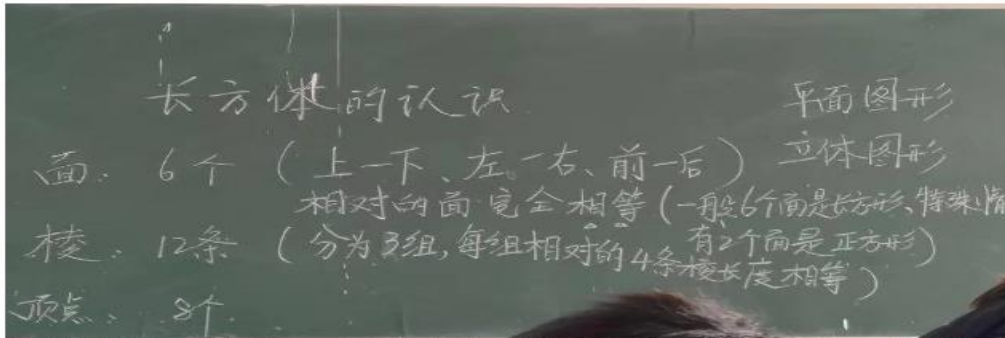 长方体的认识
平面图形
立体图形
面: 6个 (上一下、左一右、前一后)
相对的面完全相等(一般6个面是长方形、特殊情
有2个面是正方形)
棱: 12条 (分为3组,每组相对的4条棱长度相等)
顶点: 8个